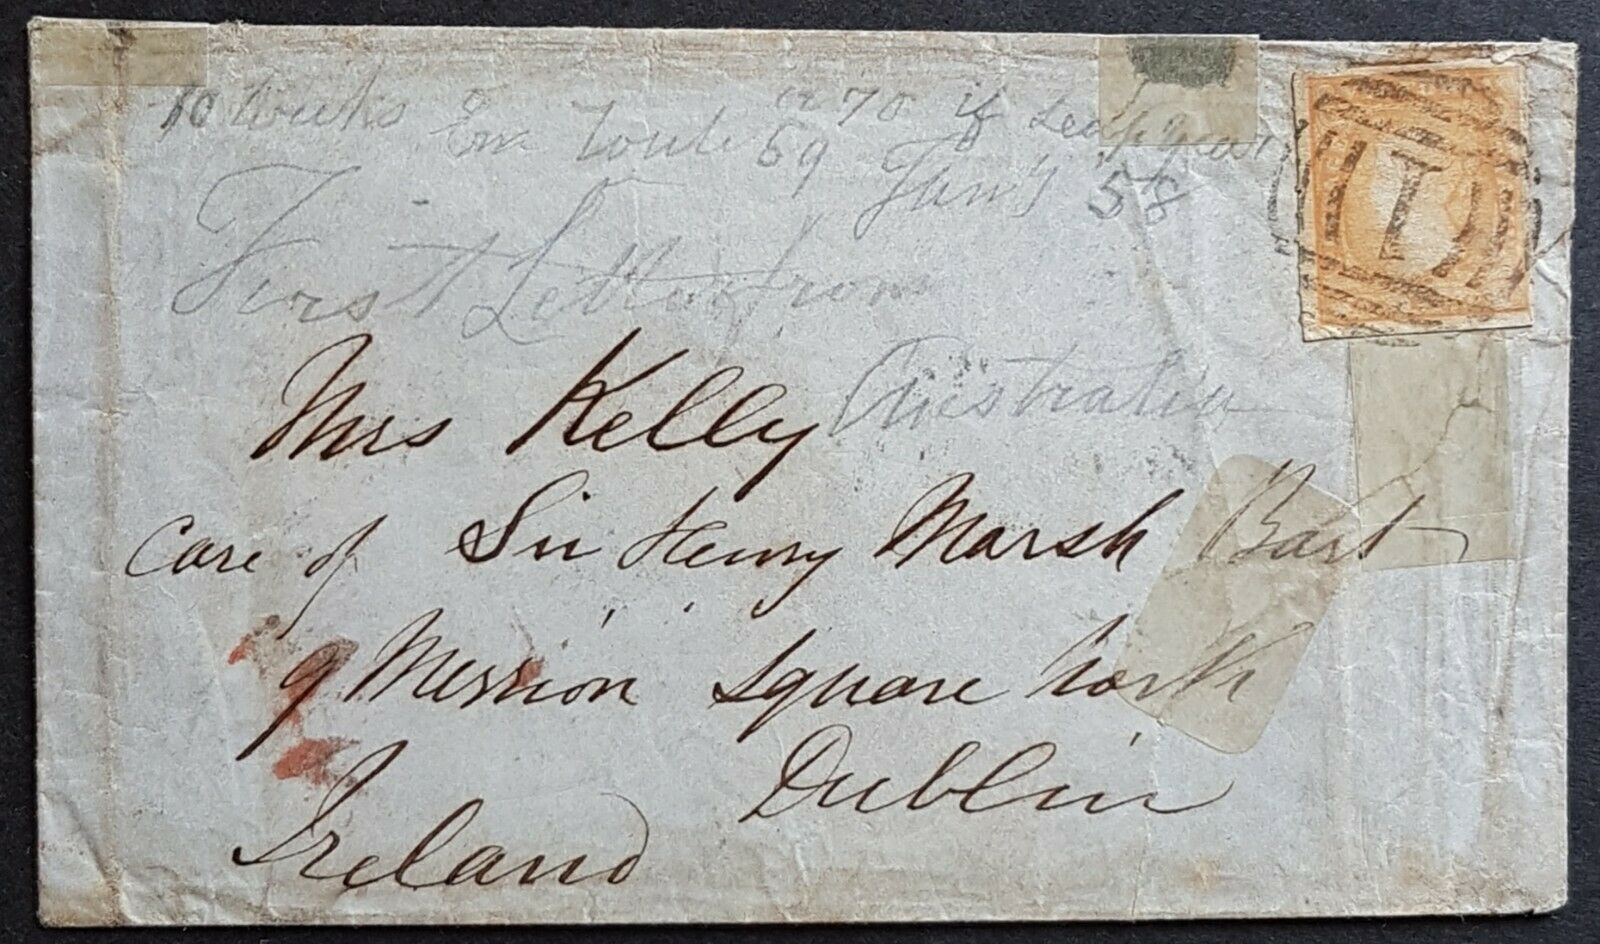 10 Weeks En Route or 70 if Leap Year
69 Jan'y 58
First Letter from
Australia
Mrs Kelly
Care of Sir Henry Marsh Bart
9 Merrion Square North
Dublin
Ireland
1